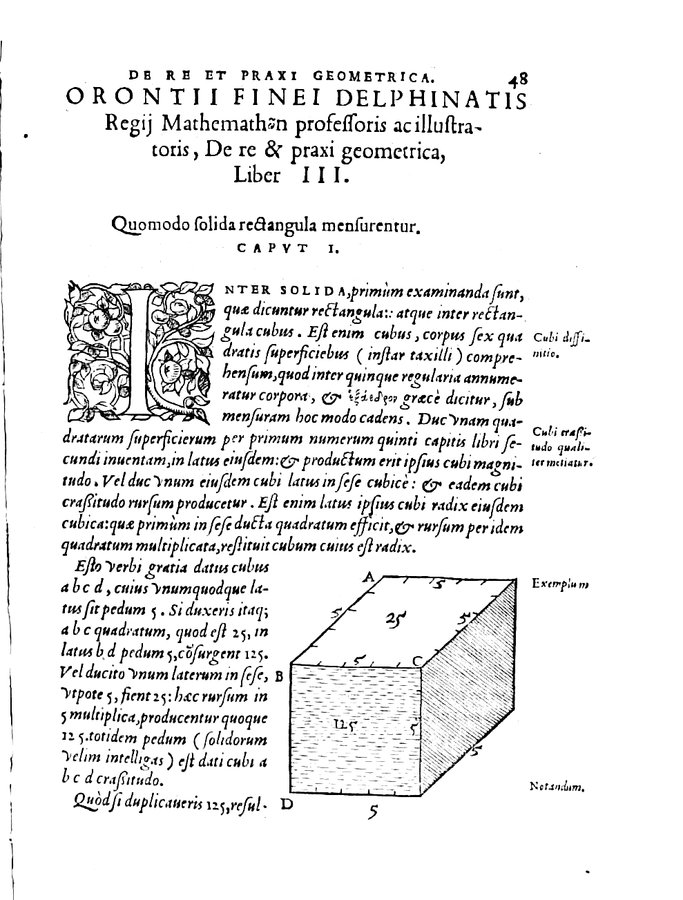 DE RE ET PRAXI GEOMETRICA. 48
ORONTII FINEI DELPHINATIS
Regij Mathemathωn professoris ac illustra-
toris, De re & praxi geometrica,
Liber III.
Quomodo solida rectangula mensurentur.
CAPVT I.
INTER SOLIDA, primùm examinanda sunt,
quæ dicuntur rectangula: atque inter rectan-
gula cubus. Est enim cubus, corpus sex qua
dratis superficiebus (instar taxilli) compre-
hensum, quod inter quinque regularia annume-
ratur corpora, & græcè dicitur, sub
mensuram hoc modo cadens. Duc vnam qua-
dratarum superficierum per primum numerum quinti capitis libri se-
cundi inuentam, in latus eiusdem: & productum erit ipsius cubi magni-
tudo. Vel duc vnum eiusdem cubi latus in sese cubicè: & eadem cubi
craßitudo rursum producetur. Est enim latus ipsius cubi radix eiusdem
cubica: quæ primùm in sese ducta quadratum efficit, & rursum per idem
quadratum multiplicata, restituit cubum cuius est radix.
Cubi diffi-
nitio.
Cubi crassi-
tudo quali-
ter metiatur.
Esto verbi gratia datus cubus
a b c d, cuius vnumquodque la-
tus sit pedum 5. Si duxeris itaq;
a b c quadratum, quod est 25, in
latus b d pedum 5, cõsurgent 125.
Vel ducito vnum laterum in sese,
vtpote 5, fient 25: hæc rursum in
5 multiplica, producentur quoque
125. totidem pedum (solidorum
velim intelligas) est dati cubi a
b c d craßitudo.
Quòd si duplicaueris 125, resul-
Exemplum
Notandum.
A
5
5
25
5
5
B
C
125
5
5
D
5